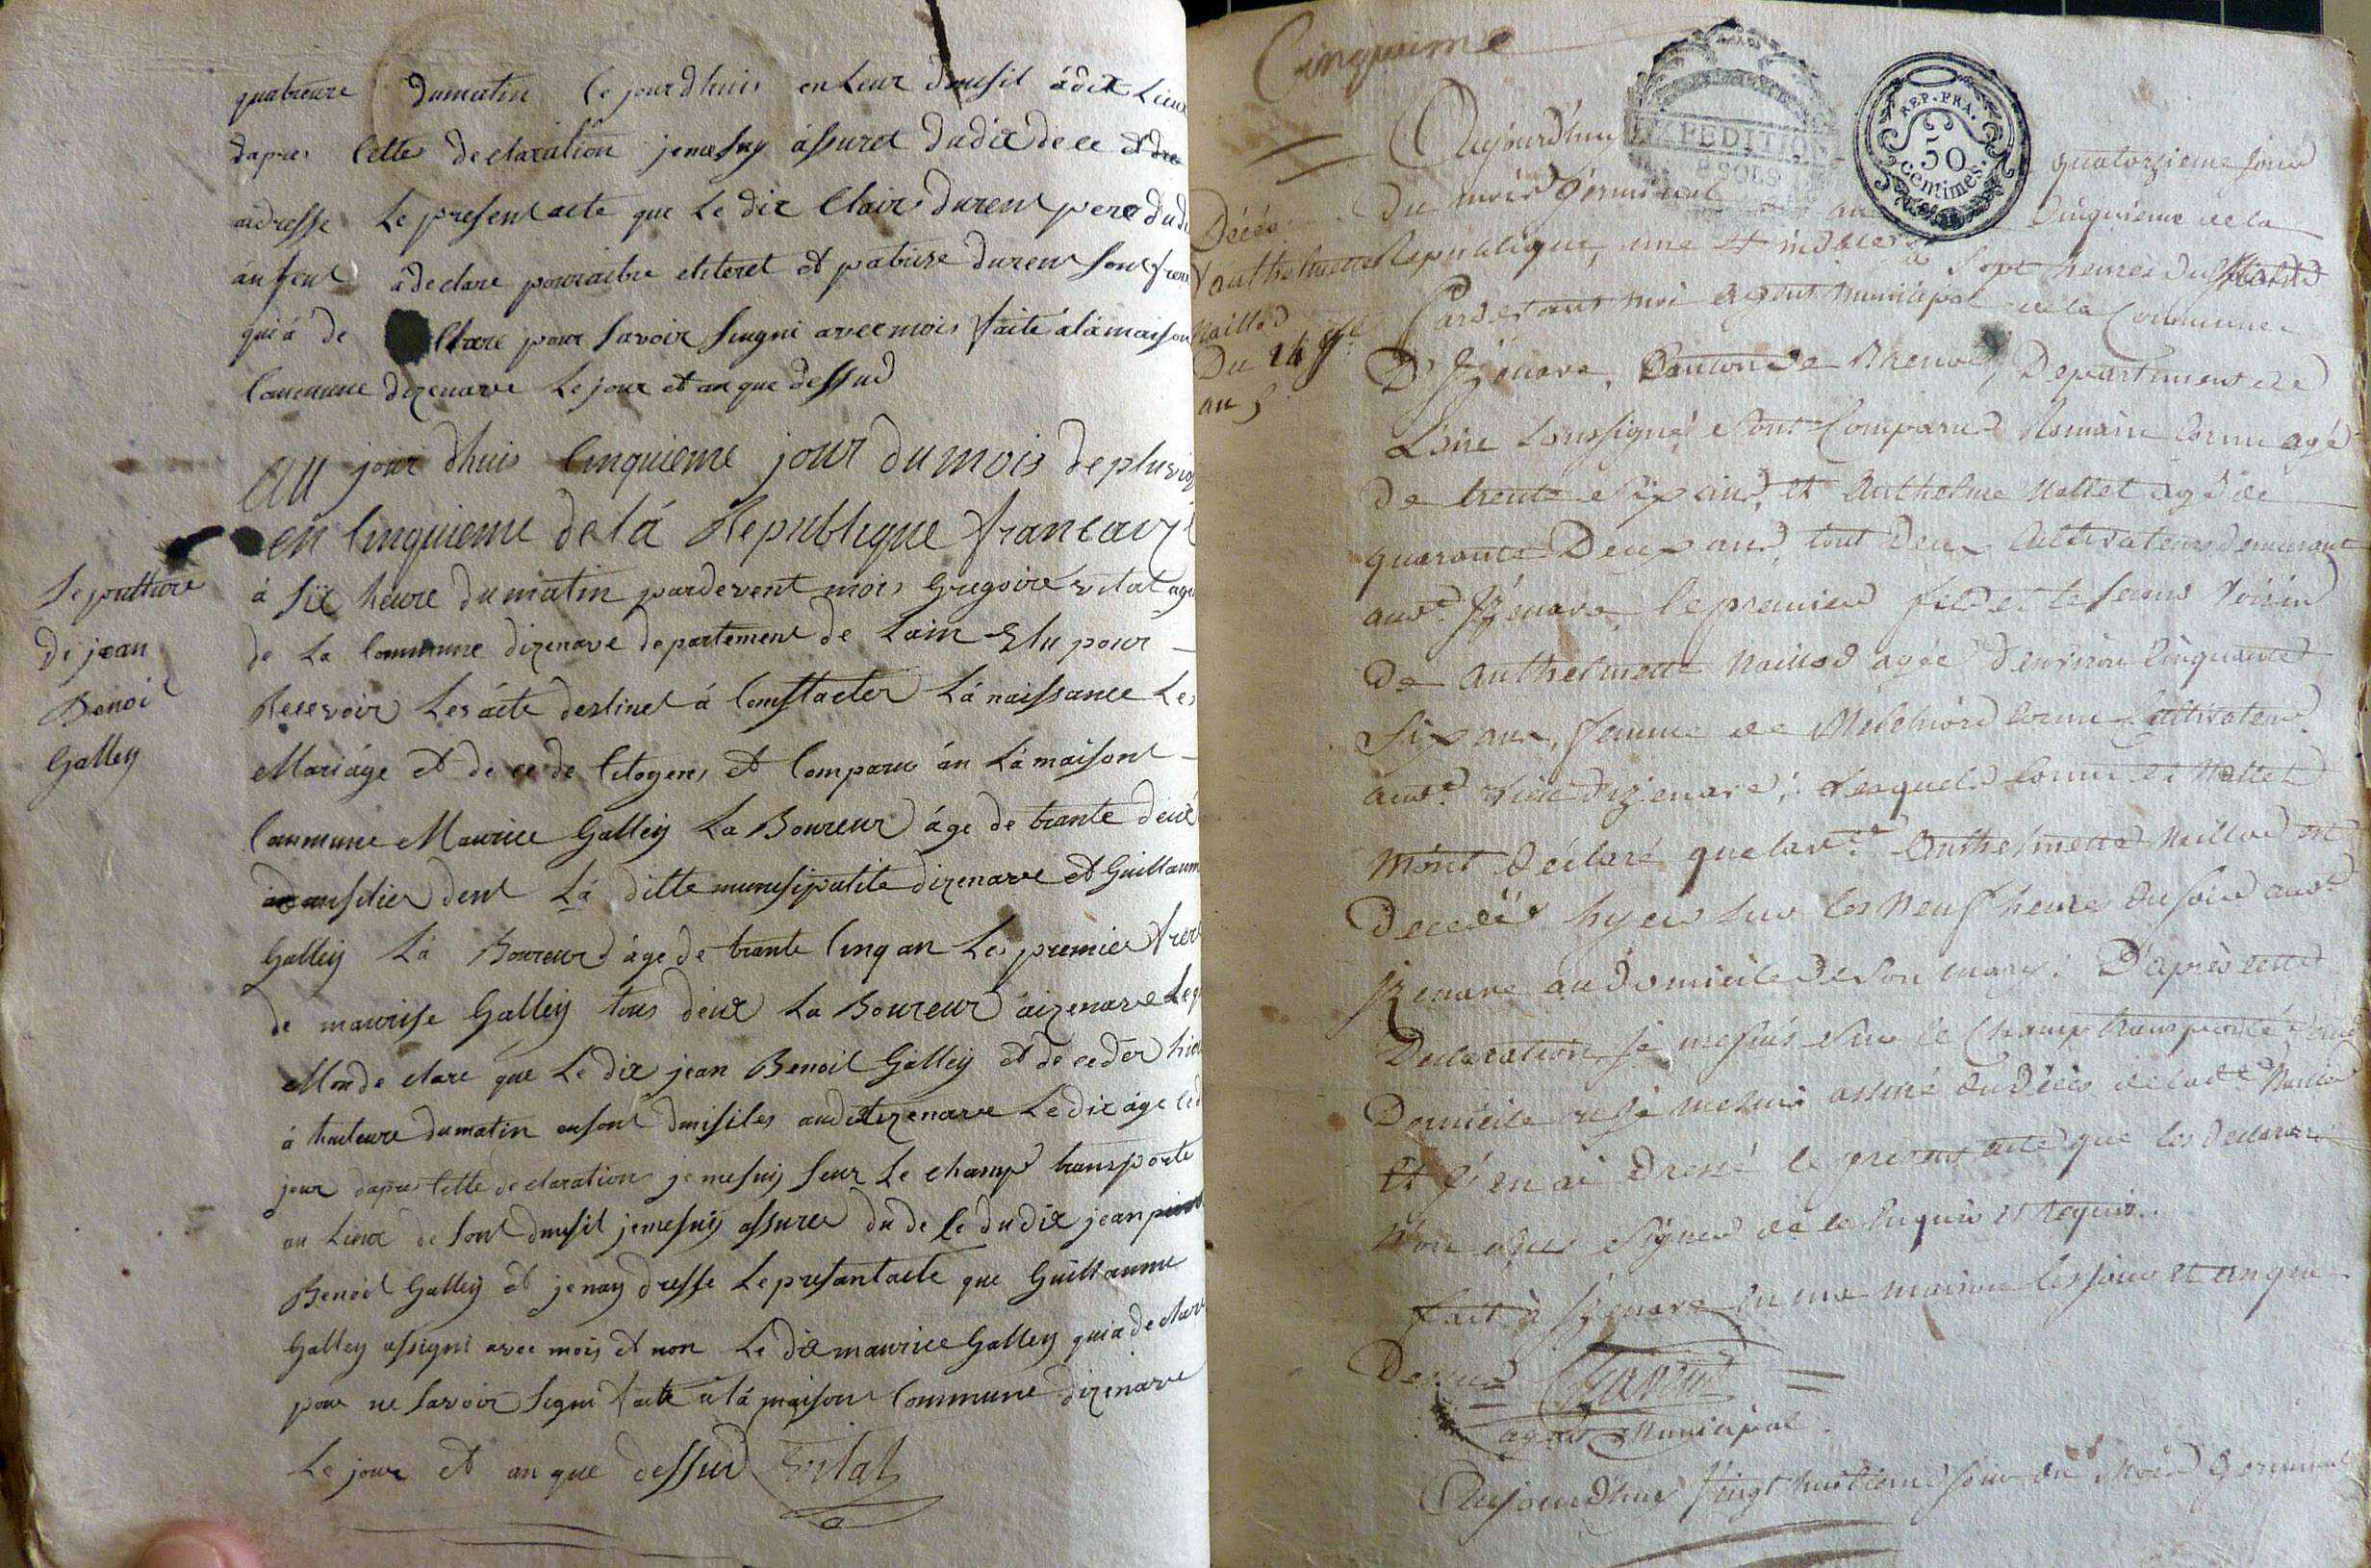 quatreure dumatin le jourdhuis en leur domsil adit Lieux
dapres lette declaration jemesuy assuret dudix de ce et dre
adresse Le present acte que Le dix Clair durent pere dudi
anfent adeclare pouraitre etiteret et patrise durent sont frere
qui á de clare pour savoir singni avecmois faite á lá maison
Commune dizenave Le jour et an que dessud
Au jour dhuis Cinquieme jour du mois de pluvio
en Cinquieme de lá Republique francaize
Sepulture
di jean
Benoi
Galley
á six heure du matin pardevent mois Gregoire vital age
de La Commune dizenave departement de Lain Elu pour
Recevoir Les ácte destinet á Constacter Lá naissance Les
Mariáge et de ce de Citogens et Comparu án Lá maisont
Commune Maurice Galley La Boureur áge de trante deux
domsilier dent Lá ditte munisipalite dizenave et Guillaum
Galley Lá Boureur áge de trante Cinq an Le premier frere
de maurise Galley tous deux La Boureur aizenave Leq
Monde clare que Le dix jean Benoit Galley et de ceder hier
á huiteure dumatin ensont domsiles audit izenave Ledix áge de
jour dapres lette declaration jemesuy seur Le champ transporte
au Lieux de sont domsil jemesuy assurer du de le du dix jean
Benoit Galley et jenay dresse Le presantacte que Guillaume
Galley assigni avec mois et non Le dix maurice Galley qui a declare
pour ne savoir signi faite á lá maison Commune dizenave
Le jour et an que dessud Vital
Cinquieme
EXPEDITION
8 SOLS
REP. FRA.
50
centimes.
Décés
d'anthelmette
Maillod
Du 14 gl.
an 5
Aujourd'huy quatorzieme jour
Du mois Germinal an Cinquieme de la
Republique, une et indivis. à sept heures du Matin
Pardevant moi agent municipal de la Commune
D'Izenave, Canton de Brenod, Departement de
L'ain soussigné sont Comparus Romain Cornu agé
De trente six ans, et Anthelme Mallet agé de
quarante Deux ans, tout deux Cultivateurs demeurant
aud.t Izenave, le premier fils et le second Voisin
De Anthelmette Maillod agée d'environ Cinquante
Six ans, femme de Melchior Cornu Cultivateur
aud.t lieu d'izenave; Lesquels Cornu et Mallet
m'ont déclaré que lad.te Anthelmette Maillod est
Decedée hyer sur les Neuf heures du soir aud.t
Izenave au domicile de son mary; D'après cette
Declaration je me suis sur le Champ transporté aud.
Domicile ou je me suis assuré du Décès de lad.te Maillod
Et j'en ai dressé le present acte que les declarants
n'ont sçus signer de ce Enquis et Requis.
fait à Izenave en ma maison les jour et an que
Dessus
agent Municipal.
Aujourd'huy Vingt huitieme jour du Mois Germinal